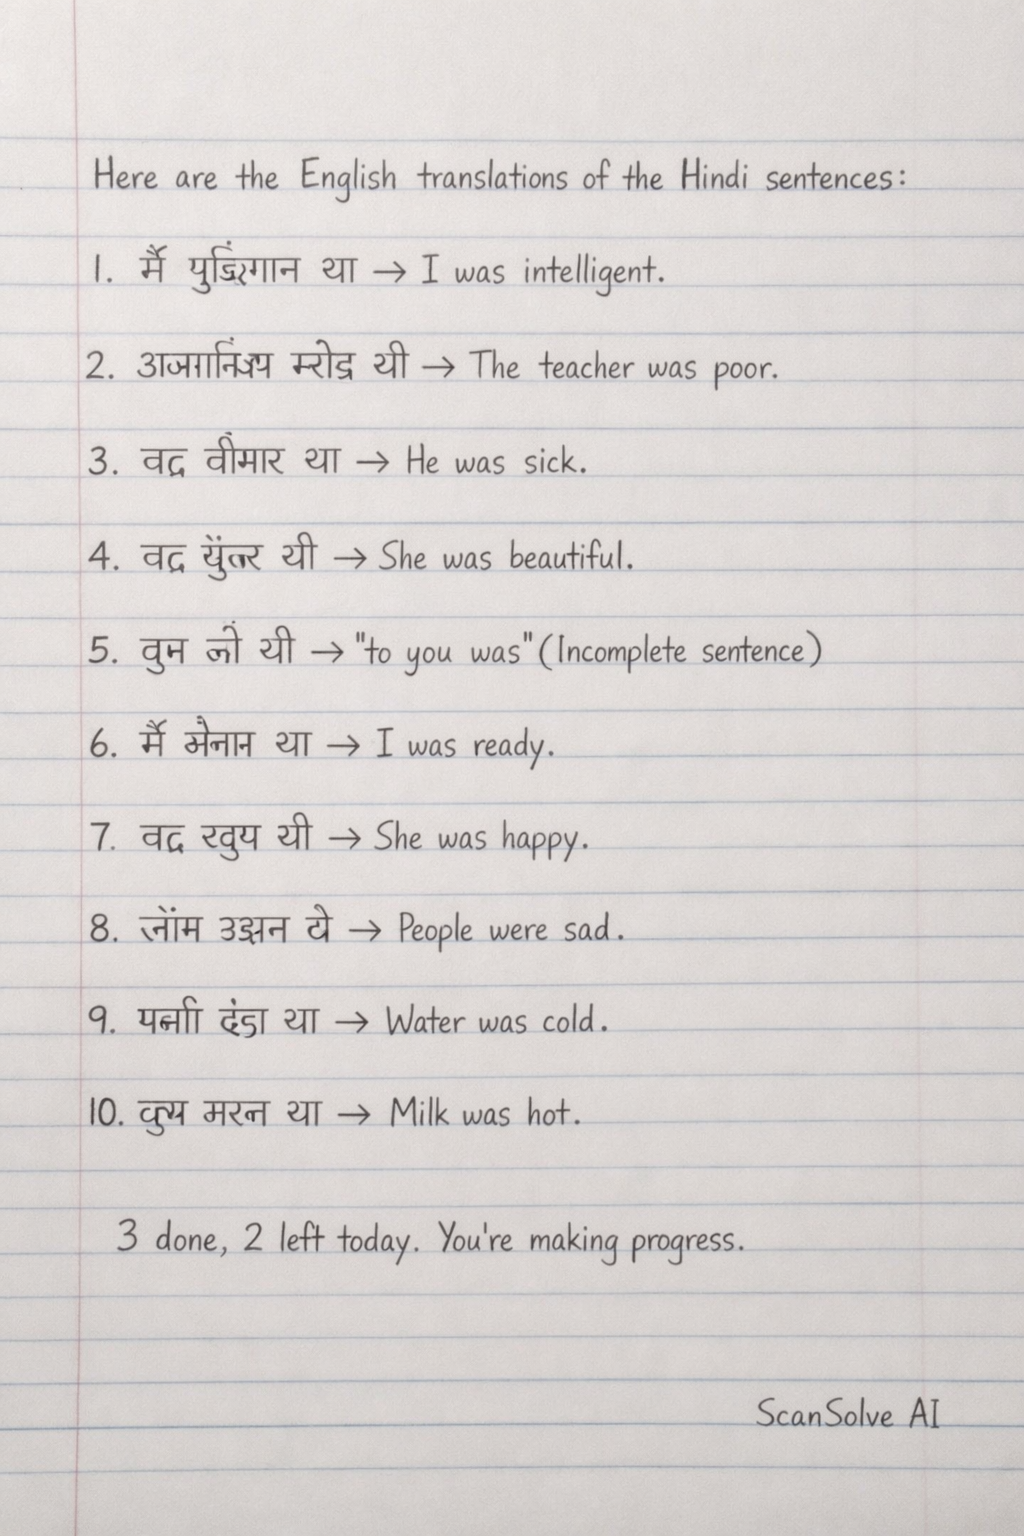 Here are the English translations of the Hindi sentences:
1. मैं था → I was intelligent.
2. यी → The teacher was poor.
3. वद्र वीमार था → He was sick.
4. वद्र यी → She was beautiful.
5. वुम यी → "to you was" (Incomplete sentence)
6. मैं था → I was ready.
7. वद्र रवुय यी → She was happy.
8. → People were sad.
9. था → Water was cold.
10. मरन था → Milk was hot.
3 done, 2 left today. You're making progress.
ScanSolve AI